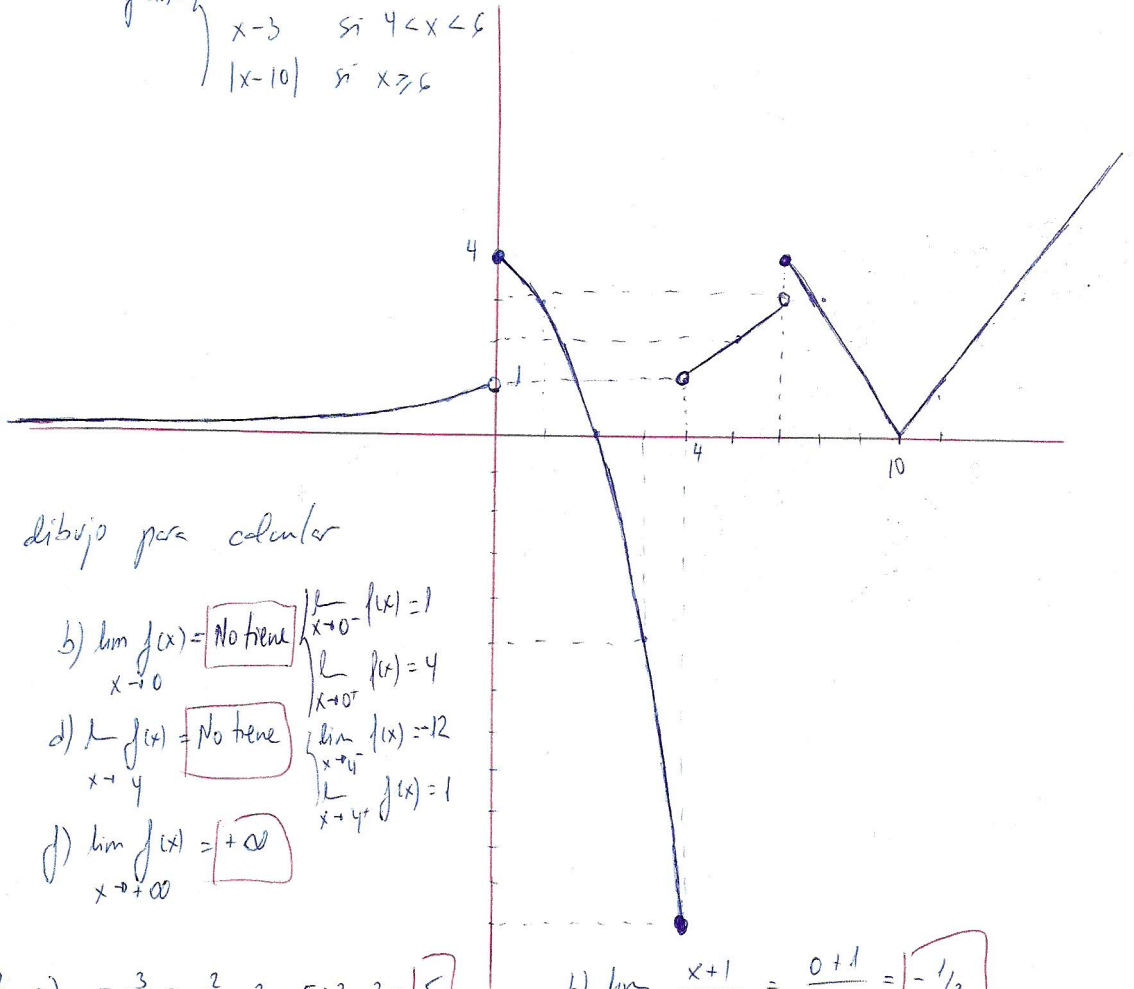 x-3 si 4<x<6
|x-10| si x≥6
4
1
4
10
dibujo para calcular
b) lim f(x) = No tiene { lim x→0⁻ f(x)=1
x→0 lim x→0⁺ f(x)=4
d) lim f(x) = No tiene { lim x→4⁻ f(x)=-12
x→4 lim x→4⁺ f(x)=1
f) lim f(x) = +∞
x→+∞
b) lim x+1 = 0+1 =